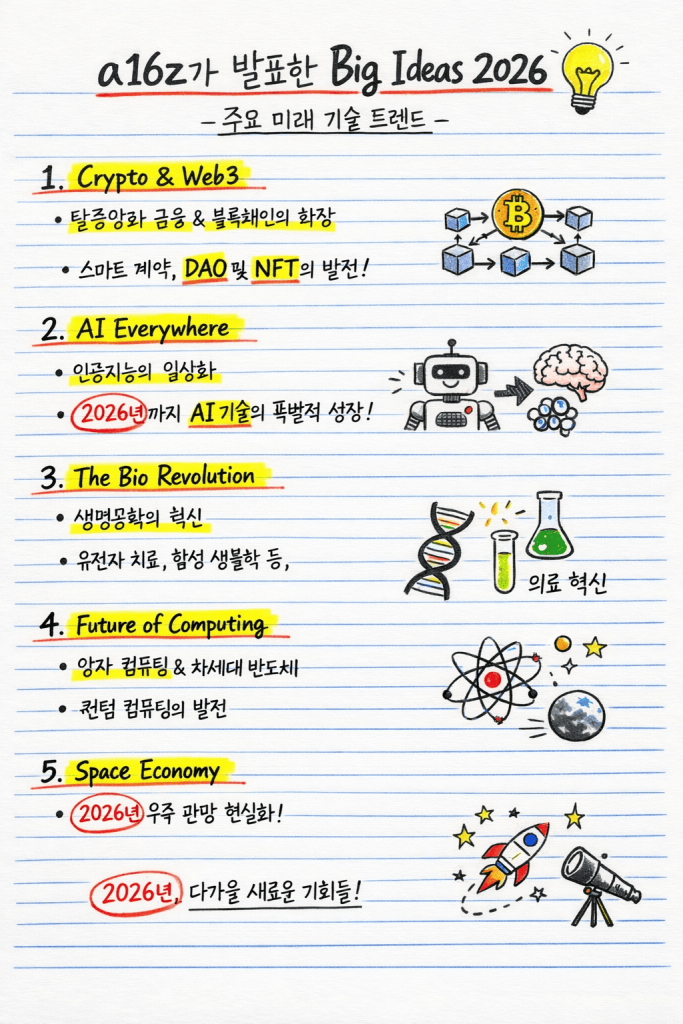 a16z가 발표한 Big Ideas 2026
- 주요 미래 기술 트렌드 -
1. Crypto & Web3
• 탈중앙화 금융 & 블록체인의 화장
• 스마트 계약, DAO 및 NFT의 발전!
2. AI Everywhere
• 인공지능의 일상화
• 2026년까지 AI 기술의 폭발적 성장!
3. The Bio Revolution
• 생명공학의 혁신
• 유전자 치료, 합성 생물학 등,
의료 혁신
4. Future of Computing
• 양자 컴퓨팅 & 차세대 반도체
• 퀀텀 컴퓨팅의 발전
5. Space Economy
• 2026년 우주 관망 현실화!
2026년, 다가올 새로운 기회들!